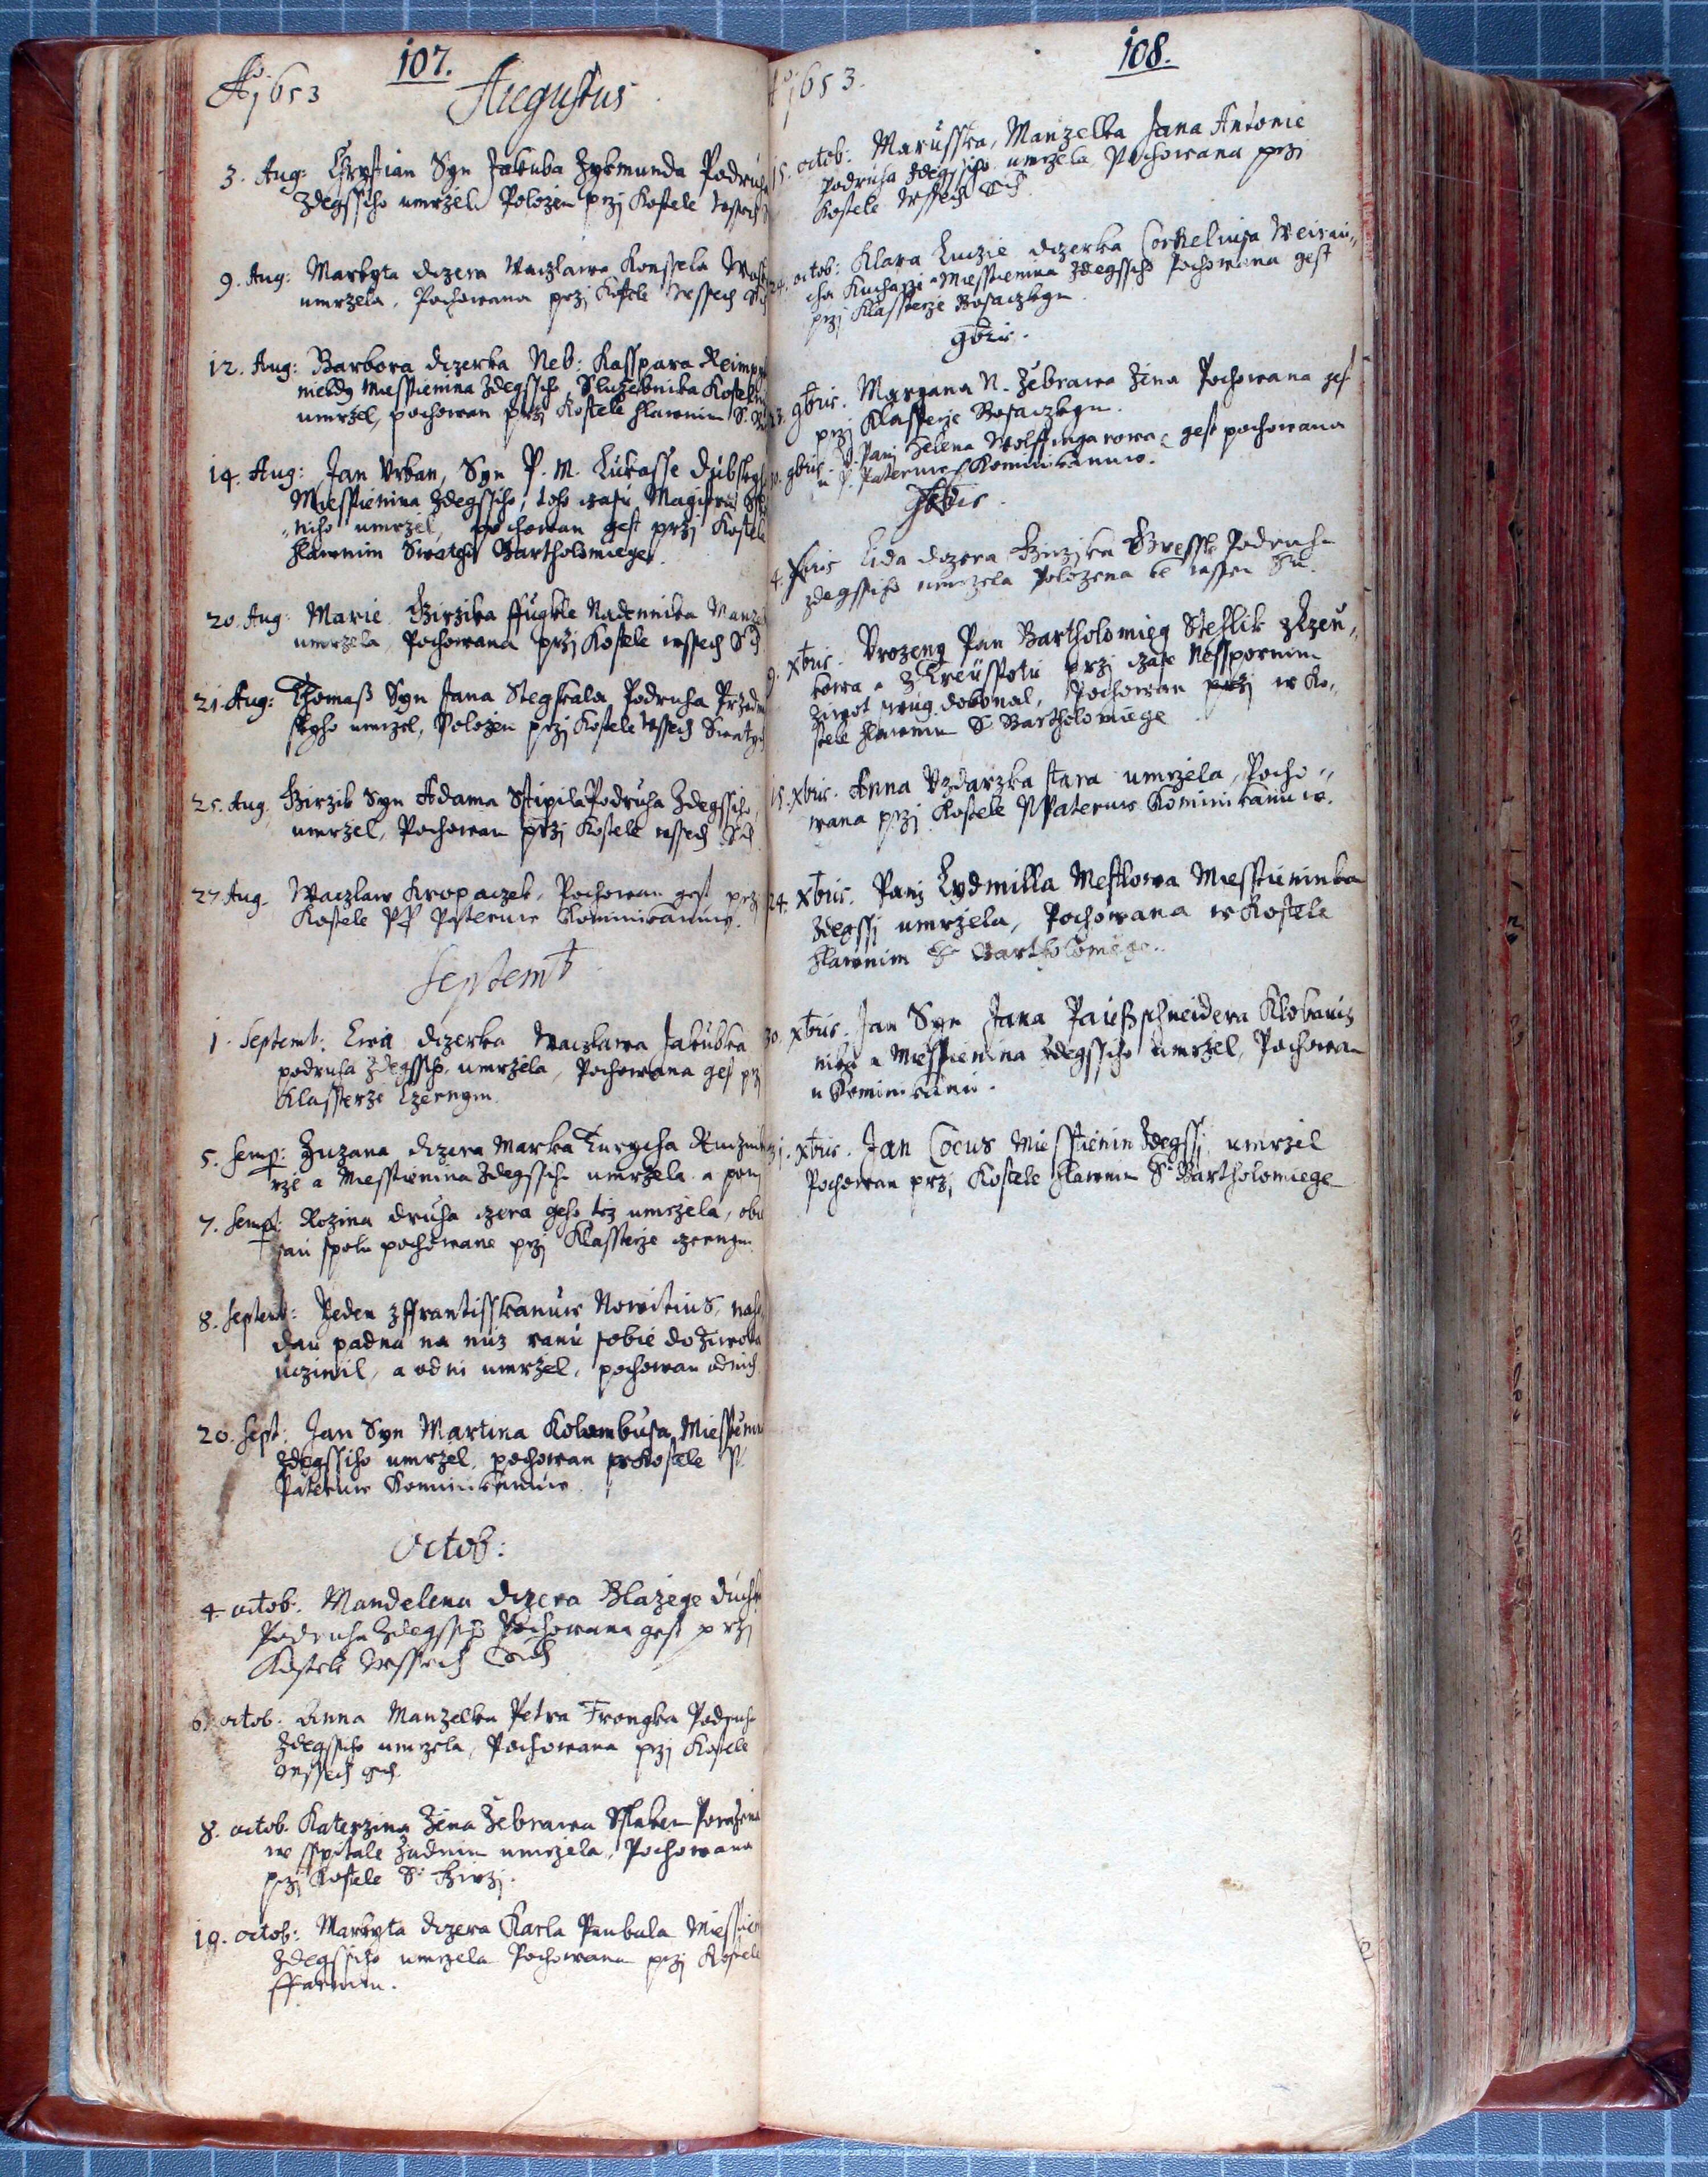 107.
Ao 1653 Augustus
3. Aug: Chrystian Syn Jakuba Zykmunda Podruh
Zdegssiho umrzel. Polozen przj Kostele wssech
9. Aug: Markyta dczera Waczlawa Konssela
umrzela, Pochowana przj Kostele wssech
12. Aug: Barbora dczerka Neb: Kasspara
niekdy Miesstienina Zdegssiho, Sluzebnika
umrzel, pochowan przj Kostele hlawnim S.
14. Aug: Jan Urban, Syn P. M. Lukasse Dubsky
Miesstienina Zdegssiho, toho czasu
niho umrzel, pochowan gest przj Kostele
hlawnim Swateho Bartholomiege.
20. Aug: Marie Girzika ffugkle Nadennika
umrzela, Pochowana przj Kostele wssech Sch
21. Aug: Thomaß Syn Jana Stegskala Podruha
umrzel, Polozen przj Kostele wssech Swatych
25. Aug. Girzik Syn Adama Sstipila Podruha Zdegssiho,
umrzel, Pochowan przj Kostele wssech Sch
27. Aug. Waczlaw Kropaczek, Pochowan gest przj
Kostele PP Paterůw Dominikanůw.
Septemb
1. Septemb: Ewa dczerka Waczlawa Jakubka
podruha Zdegssiho umrzela, Pochowana gest prz
Klassterze Czernym.
5. Zuzana dczera Marka
a Miesstienina Zdegssiho umrzela a
7. Rozina druha czera geho tez umrzela, obie
sau spolu pochowane przj Klassterze czernym.
8. Septemb: Jeden z ffrantisskanůw Nowitius,
dau padna na nůz ranu sobie do Ziwota
uczinil, a od ni umrzel, pochowan od nich.
20. Sept: Jan Syn Martina Kolombusa
Zdegssiho umrzel, pochowan w Kostele P.
Paterůw Dominikanůw
Octob:
4. octob. Mandelena dczera Blazege
Podruha Zdegssiho Pochowana gest przj
Kostele Wssech Sch
6. octob: Anna Manzelka Petra Frongka Podruh
Zdegssiho umrzela, Pochowana przj Kostele
wssech Sch.
8. octob. Katerzina Zena Zebrawa
w sspitale umrzela, Pochowana
przj Kostele S. Girzj.
19. octob: Markyta dczera Karla Paubala
Zdegssiho umrzela Pochowana przj Kostele
ffarnim.
108.
1653.
15. octob: Marusska, Manzelka Jana Antonie
podruha Zdegssiho umrzela Pochowana przj
Kostele Wssech Sch
24. octob: Klara Luczie dczerka Corneliusa
Kucharze a Miesstienina Zdegssiho Pochowana gest
przj Klassterze Bosaczkym
9bris.
9bris. Maryana N. Zebrawa Zena Pochowana
przj Klassterze Bosaczkym.
9bris. Panj Helena gest pochowana
u P. Paterůw Dominikanůw.
Xbris
4. Xbris Lida dczera Girzika Podruha
Zdegssiho umrzela Polozena
9. Xbris. Urozeny Pan Bartholomieg Stehlik z
kowa a z przj czase Nessporním
Ziwot swug dokonal, Pochowan w Ko-
stele hlawnim S. Bartholomiege
15. Xbris. Anna Uzdarzka stara umrzela, Pocho-
wana przj Kostele P Paterůw Dominikanůw.
24. Xbris. Panj Lydmilla Mestlowa Miesstieninka
Zdegssj umrzela, Pochowana w Kostele
hlawnim S. Bartholomiege.
30. Xbris. Jan Syn Jana Klobaucz
nika a Miesstienina Zdegssiho umrzel, Pochowan
u Dominikanů.
31. Xbris. Jan Cocus Miesstienin Zdegssj umrzel
Pochowan przj Kostele hlawnim S. Bartholomiege